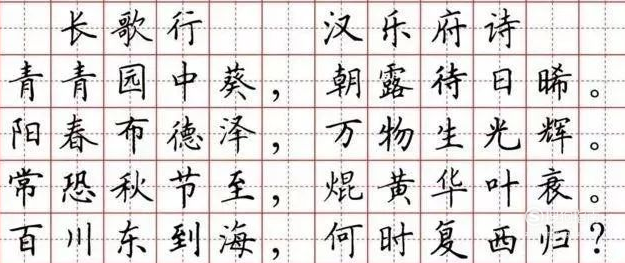 长歌行 汉乐府诗
青青园中葵，朝露待日晞。
阳春布德泽，万物生光辉。
常恐秋节至，焜黄华叶衰。
百川东到海，何时复西归？